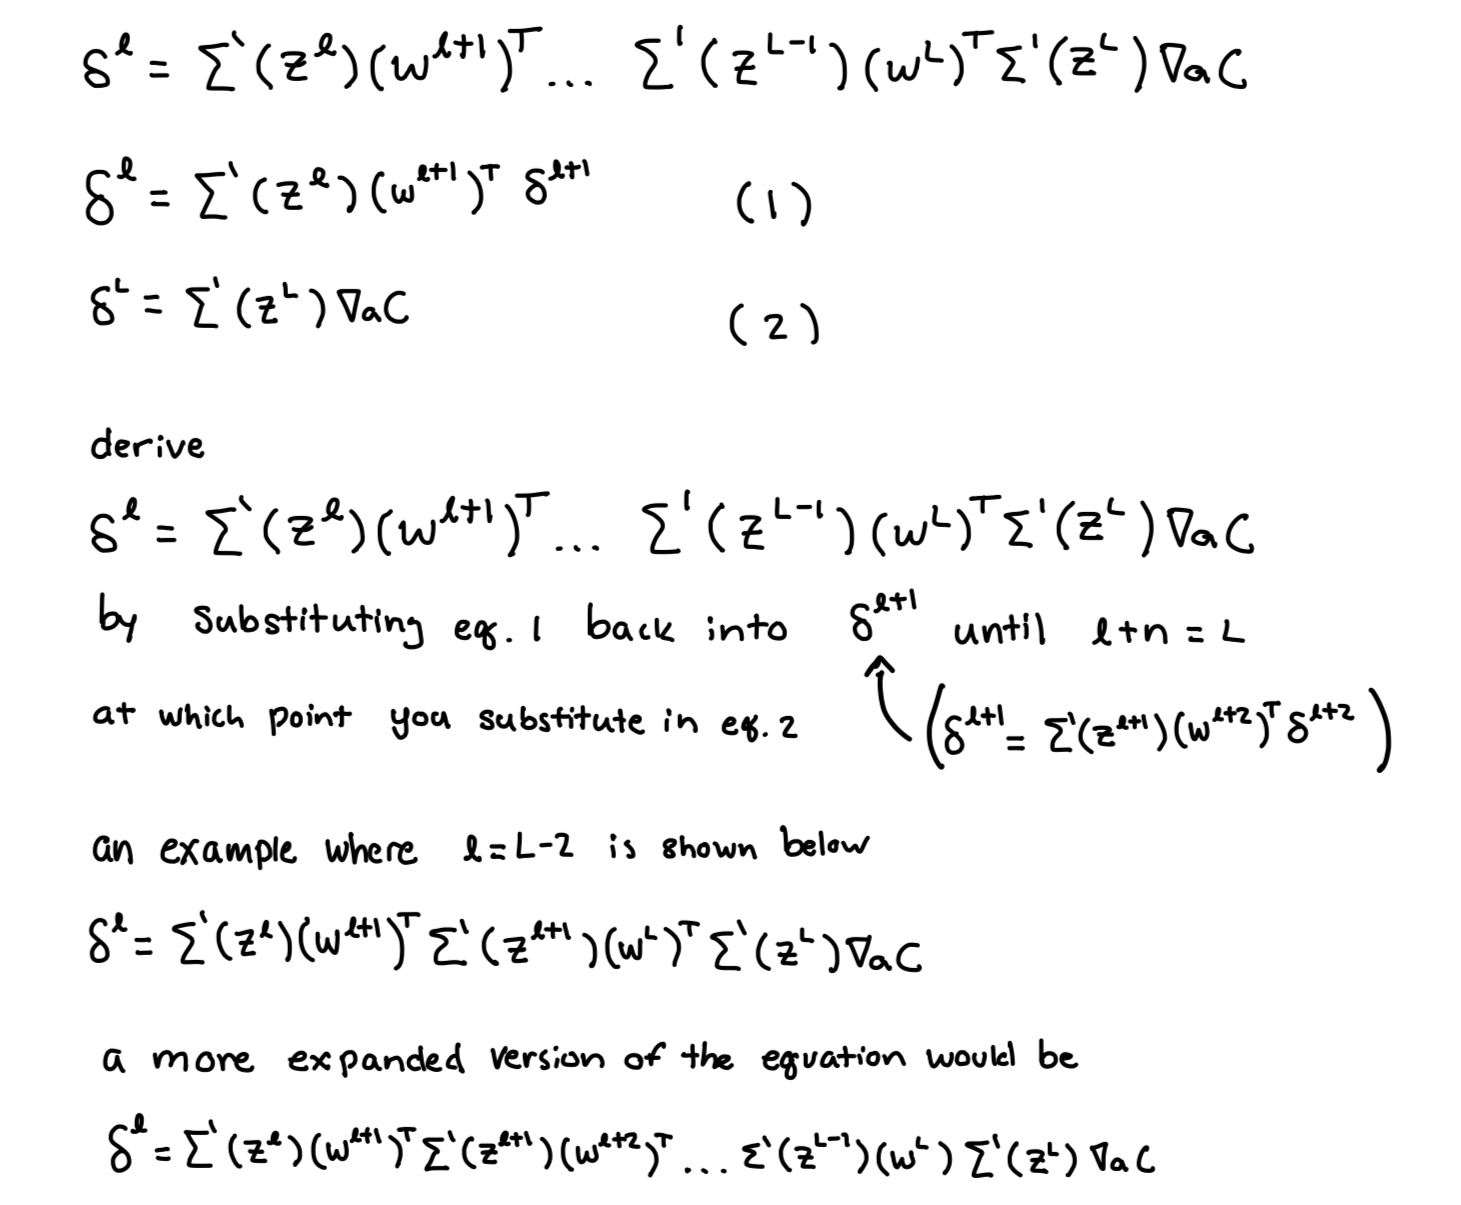 δ^l = Σ'(z^l)(w^{l+1})^T ... Σ'(z^{L-1})(w^L)^T Σ'(z^L)∇aC
δ^l = Σ'(z^l)(w^{l+1})^T δ^{l+1} (1)
δ^L = Σ'(z^L)∇aC (2)
derive
δ^l = Σ'(z^l)(w^{l+1})^T ... Σ'(z^{L-1})(w^L)^T Σ'(z^L)∇aC
by substituting eq. 1 back into δ^{l+1} until l+n = L
at which point you substitute in eq. 2 (δ^{l+1} = Σ'(z^{l+1})(w^{l+2})^T δ^{l+2})
an example where l = L-2 is shown below
δ^l = Σ'(z^l)(w^{l+1})^T Σ'(z^{l+1})(w^L)^T Σ'(z^L)∇aC
a more expanded version of the equation would be
δ^l = Σ'(z^l)(w^{l+1})^T Σ'(z^{l+1})(w^{l+2})^T ... Σ'(z^{L-1})(w^L) Σ'(z^L)∇aC